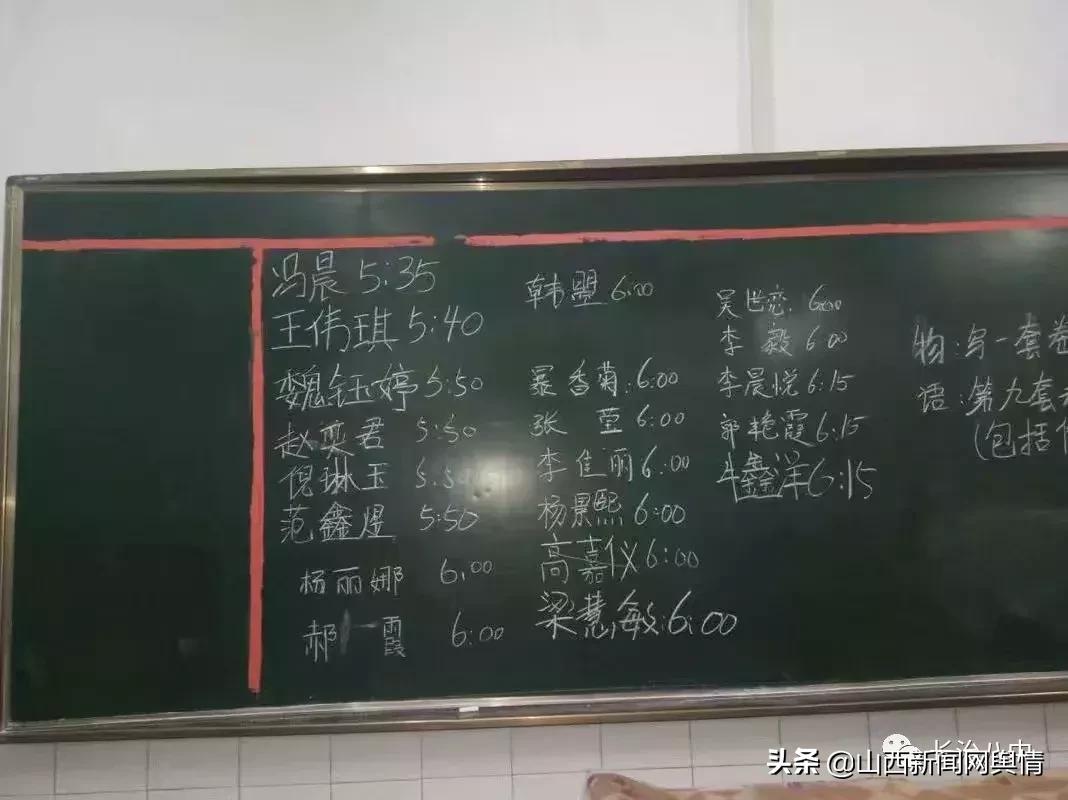 冯晨 5:35
王伟琪 5:40
魏钰婷 5:50
赵奕君 5:50
倪琳玉 5:50
范鑫煜 5:50
杨丽娜 6:00
郝一霞 6:00
韩盟 6:00
暴香菊:6:00
张莹 6:00
李佳丽 6:00
杨景熙 6:00
高嘉仪 6:00
梁慧敏:6:00
吴世恋:6:00
李毅 6:00
李晨悦 6:15
郭艳霞 6:15
牛鑫洋 6:15
物:写一套卷
语:第九套
(包括
长治八中
头条 @山西新闻网舆情